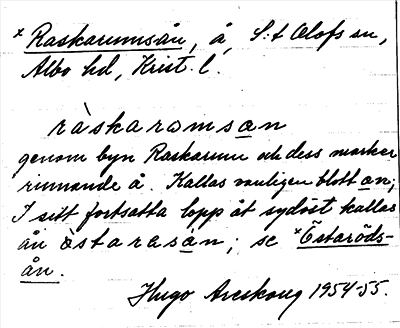 × Raskarumsån, å, S:t Olofs sn,
Albo hd, Krist. l.
ràskarọmsan
genom byn Raskarum och dess marker
rinnande å. Kallas vanligen blott an;
I sitt fortsatta lopp åt sydöst kallas
ån òstarasán; se × Östaröds-
ån.
Hugo Areskoug 1954-55.